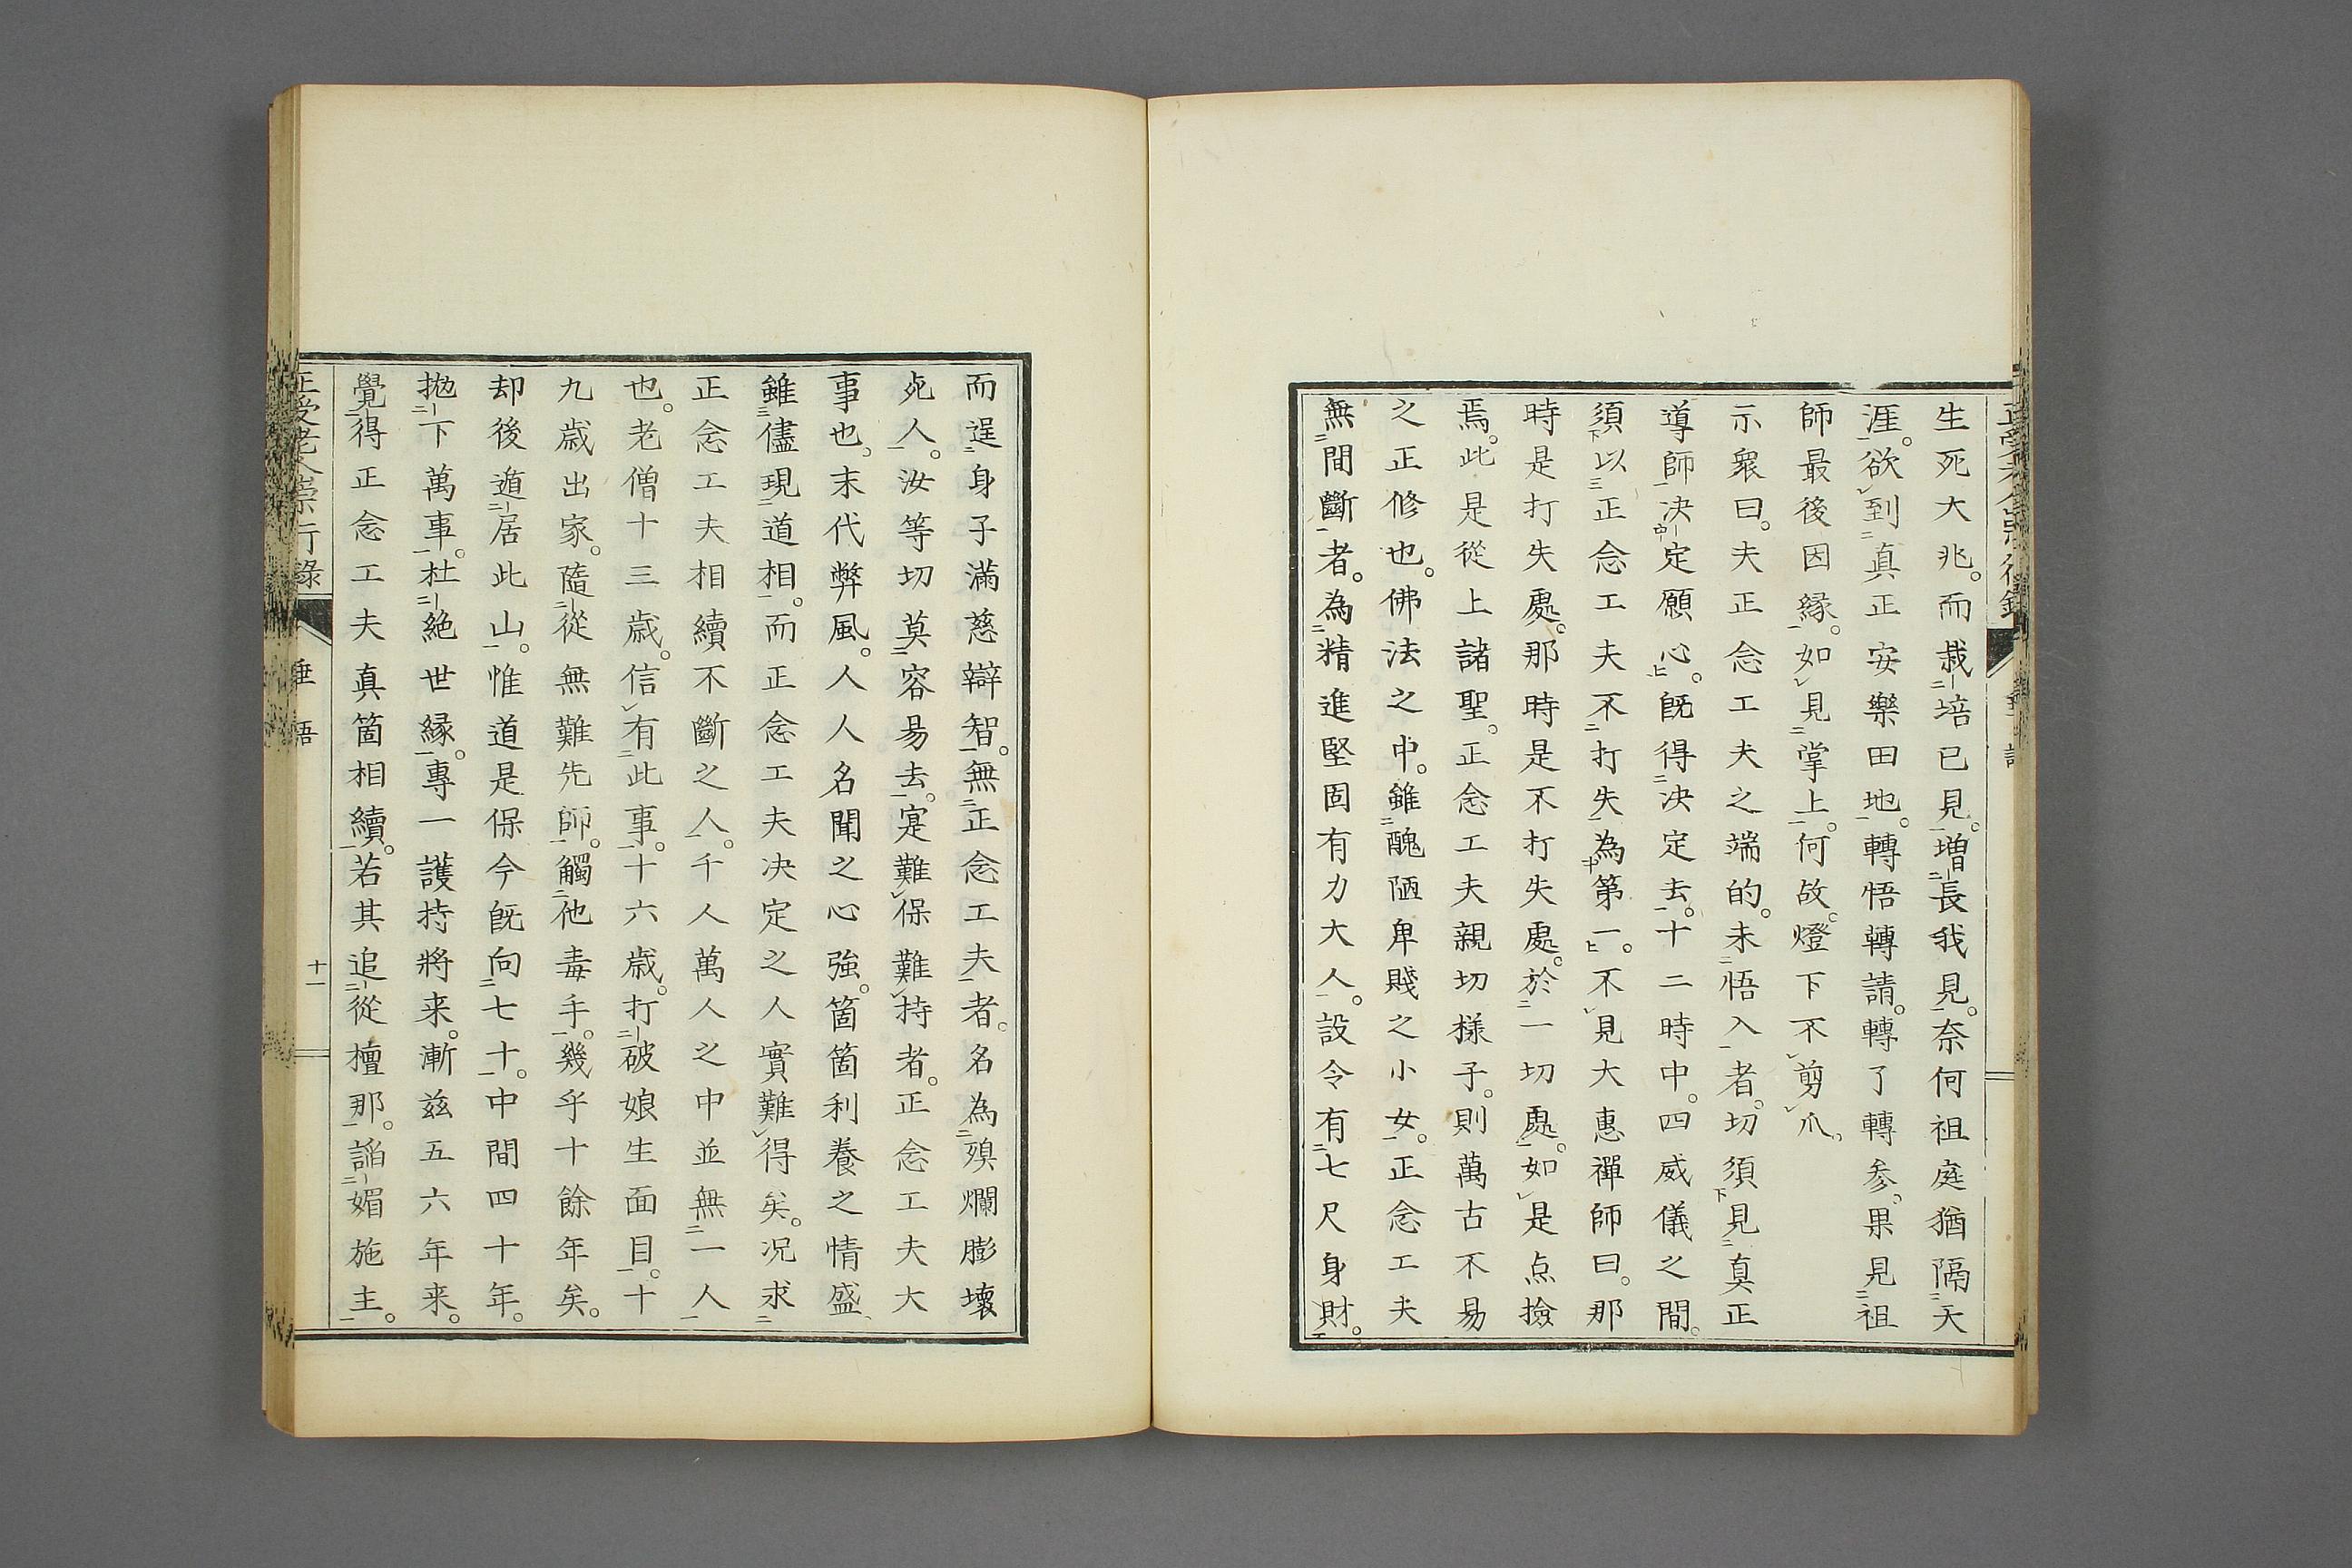 生死大兆。而栽培已見。増長我見。奈何祖庭猶隔天
涯。欲到真正安樂田地。轉悟轉請。轉了轉参。果見祖
師最後因縁。如見掌上。何故。燈下不剪爪。
示衆曰。夫正念工夫之端的。未悟入者。切須見真正
導師决定願心。既得决定去。十二時中。四威儀之間。
須以正念工夫不打失為第一。不見大惠禪師曰。那
時是打失處。那時是不打失處。於一切處。如是点撿
焉。此是從上諸聖。正念工夫親切様子。則萬古不易
之正修也。佛法之中。雖醜陋卑賤之小女。正念工夫
無間斷者。為精進堅固有力大人。設令有七尺身財。
而逞身子滿慈辯智。無正念工夫者。名為殠爛膨壞
死人。汝等切莫容易去。寔難保難持者。正念工夫大
事也。末代弊風。人人名聞之心強。箇箇利養之情盛、
雖儘現道相。而正念工夫决定之人實難得矣。况求
正念工夫相續不斷之人。千人萬人之中並無一人
也。老僧十三歳。信有此事。十六歳。打破娘生面目。十
九歳出家。隨從無難先師。觸他毒手。幾乎十餘年矣。
却後遁居此山。惟道是保今既向七十。中間四十年。
抛下萬事。杜絶世縁。專一護持將来。漸茲五六年来。
覺得正念工夫真箇相續。若其追從檀那。謟媚施主。
正受老人崇行録
垂語
十一